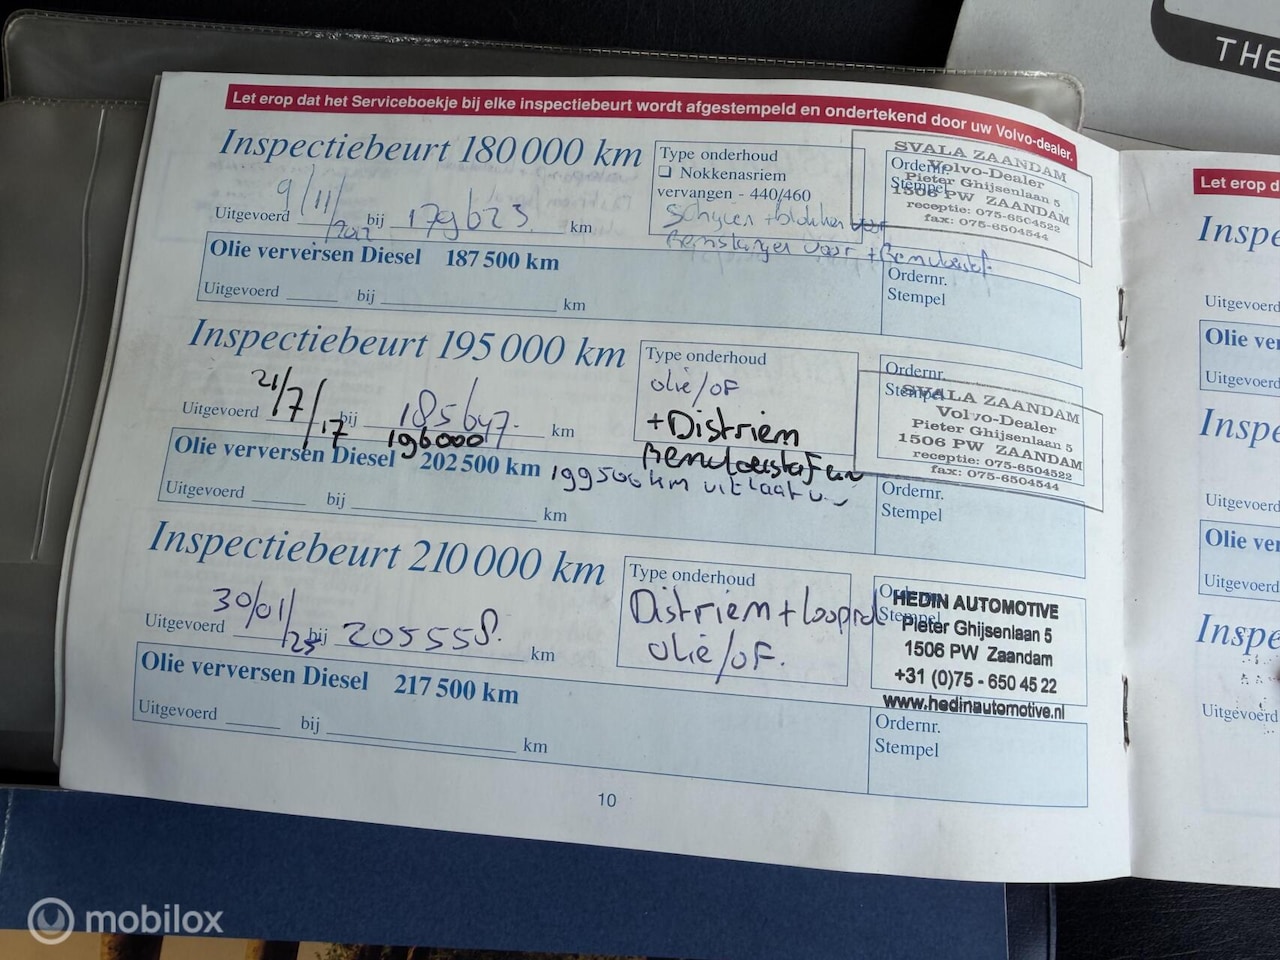 THE
Let erop dat het Serviceboekje bij elke inspectiebeurt wordt afgestempeld en ondertekend door uw Volvo-dealer.
Inspectiebeurt 180 000 km
Type onderhoud
❏ Nokkenasriem
vervangen - 440/460
Schijven + blokken voor
Remslangen voor + Remvloeistof
Ordernr.
Stempel
SVALA ZAANDAM
Volvo-Dealer
Pieter Ghijsenlaan 5
1506 PW ZAANDAM
receptie: 075-6504522
fax: 075-6504544
Uitgevoerd 9/11/2012 bij 179623 km
Olie verversen Diesel 187 500 km
Uitgevoerd bij km
Ordernr.
Stempel
Inspectiebeurt 195 000 km
Type onderhoud
olie/oF
+Distriem
Remvloeistof
Ordernr.
Stempel
SVALA ZAANDAM
Volvo-Dealer
Pieter Ghijsenlaan 5
1506 PW ZAANDAM
receptie: 075-6504522
fax: 075-6504544
Uitgevoerd 21/7/17 bij 185647. km
196000
Olie verversen Diesel 202 500 km
199500 km uitlaat
Uitgevoerd bij km
Ordernr.
Stempel
Inspectiebeurt 210 000 km
Type onderhoud
Distriem + looprol
olie/oF.
Stempel
HEDIN AUTOMOTIVE
Pieter Ghijsenlaan 5
1506 PW Zaandam
+31 (0)75 - 650 45 22
www.hedinautomotive.nl
Uitgevoerd 30/01/25 bij 205558. km
Olie verversen Diesel 217 500 km
Uitgevoerd bij km
Ordernr.
Stempel
10
Let erop d
Inspe
Uitgevoerd
Olie ver
Uitgevoerd
Inspe
Uitgevoerd
Olie ver
Uitgevoerd
Inspe
Uitgevoerd
mobilox